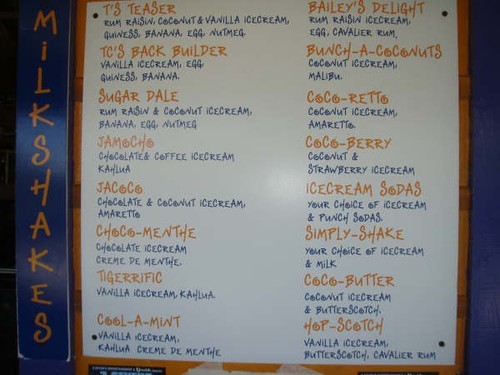 MILKSHAKES
T'S TEASER
RUM RAISIN, COCONUT & VANILLA ICECREAM,
GUINESS, BANANA, EGG, NUTMEG.
TC'S BACK BUILDER
VANILLA ICECREAM, EGG
GUINESS, BANANA.
SUGAR DALE
RUM RAISIN & COCONUT ICECREAM,
BANANA, EGG, NUTMEG
JAMOCHO
CHOCOLATE & COFFEE ICECREAM
KAHLUA
JACOCO
CHOCOLATE & COCONUT ICECREAM,
AMARETTO
CHOCO-MENTHE
CHOCOLATE ICECREAM
CREME DE MENTHE.
TIGERRIFIC
VANILLA ICECREAM, KAHLUA.
COOL-A-MINT
VANILLA ICECREAM,
KAHLUA CREME DE MENTHE
BAILEY'S DELIGHT
RUM RAISIN ICECREAM,
EGG, CAVALIER RUM,
BUNCH-A-COCONUTS
COCONUT ICECREAM,
MALIBU.
COCO-RETTO
COCONUT ICECREAM,
AMARETTO.
COCO-BERRY
COCONUT &
STRAWBERRY ICECREAM
ICECREAM SODAS
YOUR CHOICE OF ICECREAM
& PUNCH SODAS.
SIMPLY-SHAKE
YOUR CHOICE OF ICECREAM
& MILK
COCO-BUTTER
COCONUT ICECREAM
& BUTTERSCOTCH.
HOP-SCOTCH
VANILLA ICECREAM,
BUTTERSCOTCH, CAVALIER RUM